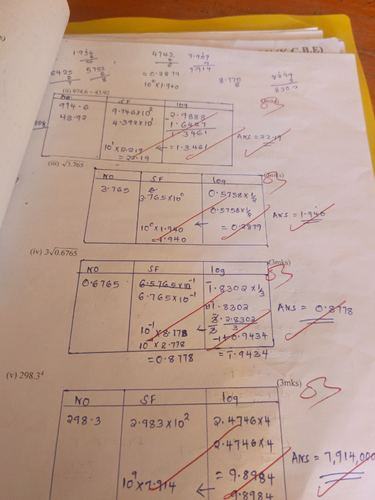 (ii) 974.6 ÷ 43.92
NO SF log
974.6 9.746 x 10² 2.9888
43.92 4.392 x 10¹ 1.6427
1.3461
10¹ x 2.219 ← = 1.3461
= 22.19
Ans = 22.19
(iii) √3.765
NO SF log
3.765 3.765 x 10⁰ 0.5758 x ½
0.5758 x ½
10⁰ x 1.940 ← = 0.2879
= 1.940
Ans = 1.940
(iv) 3√0.6765 (3mks)
NO SF log
0.6765 6.5765 x 10⁻¹ 1̄.8302 x ⅓
6.765 x 10⁻¹ 1̄.8302
3̄ + 2.8302
3 3
10⁻¹ x 8.778 -1 + 0.9434
10⁻¹ x 8.778 ←
= 0.8778 = 1̄.9434
Ans = 0.8778
(v) 298.3⁴ (3mks)
NO SF log
298.3 2.983 x 10² 2.4746 x 4
2.4746 x 4
= 9.8984
10⁹ x 7.914 ← 9.8984
Ans = 7,914,000